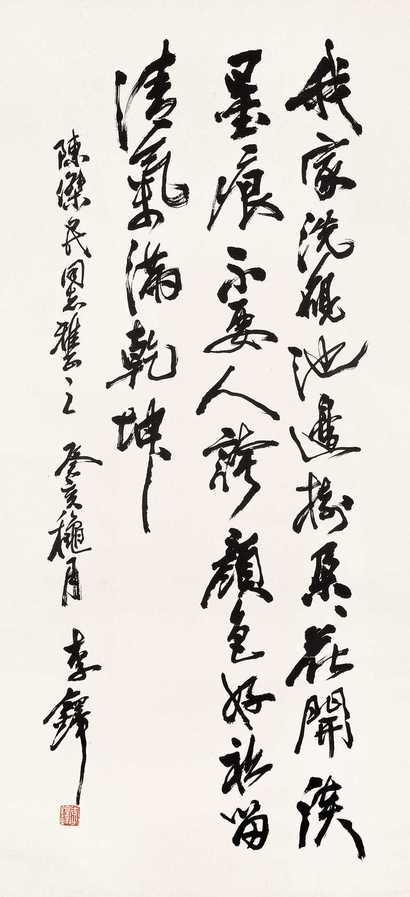 我家洗硯池邊樹朵々花開淡
墨痕不要人誇顏色好祇留
清氣滿乾坤
陳傑民同志雅正 癸亥穐月 李鐸